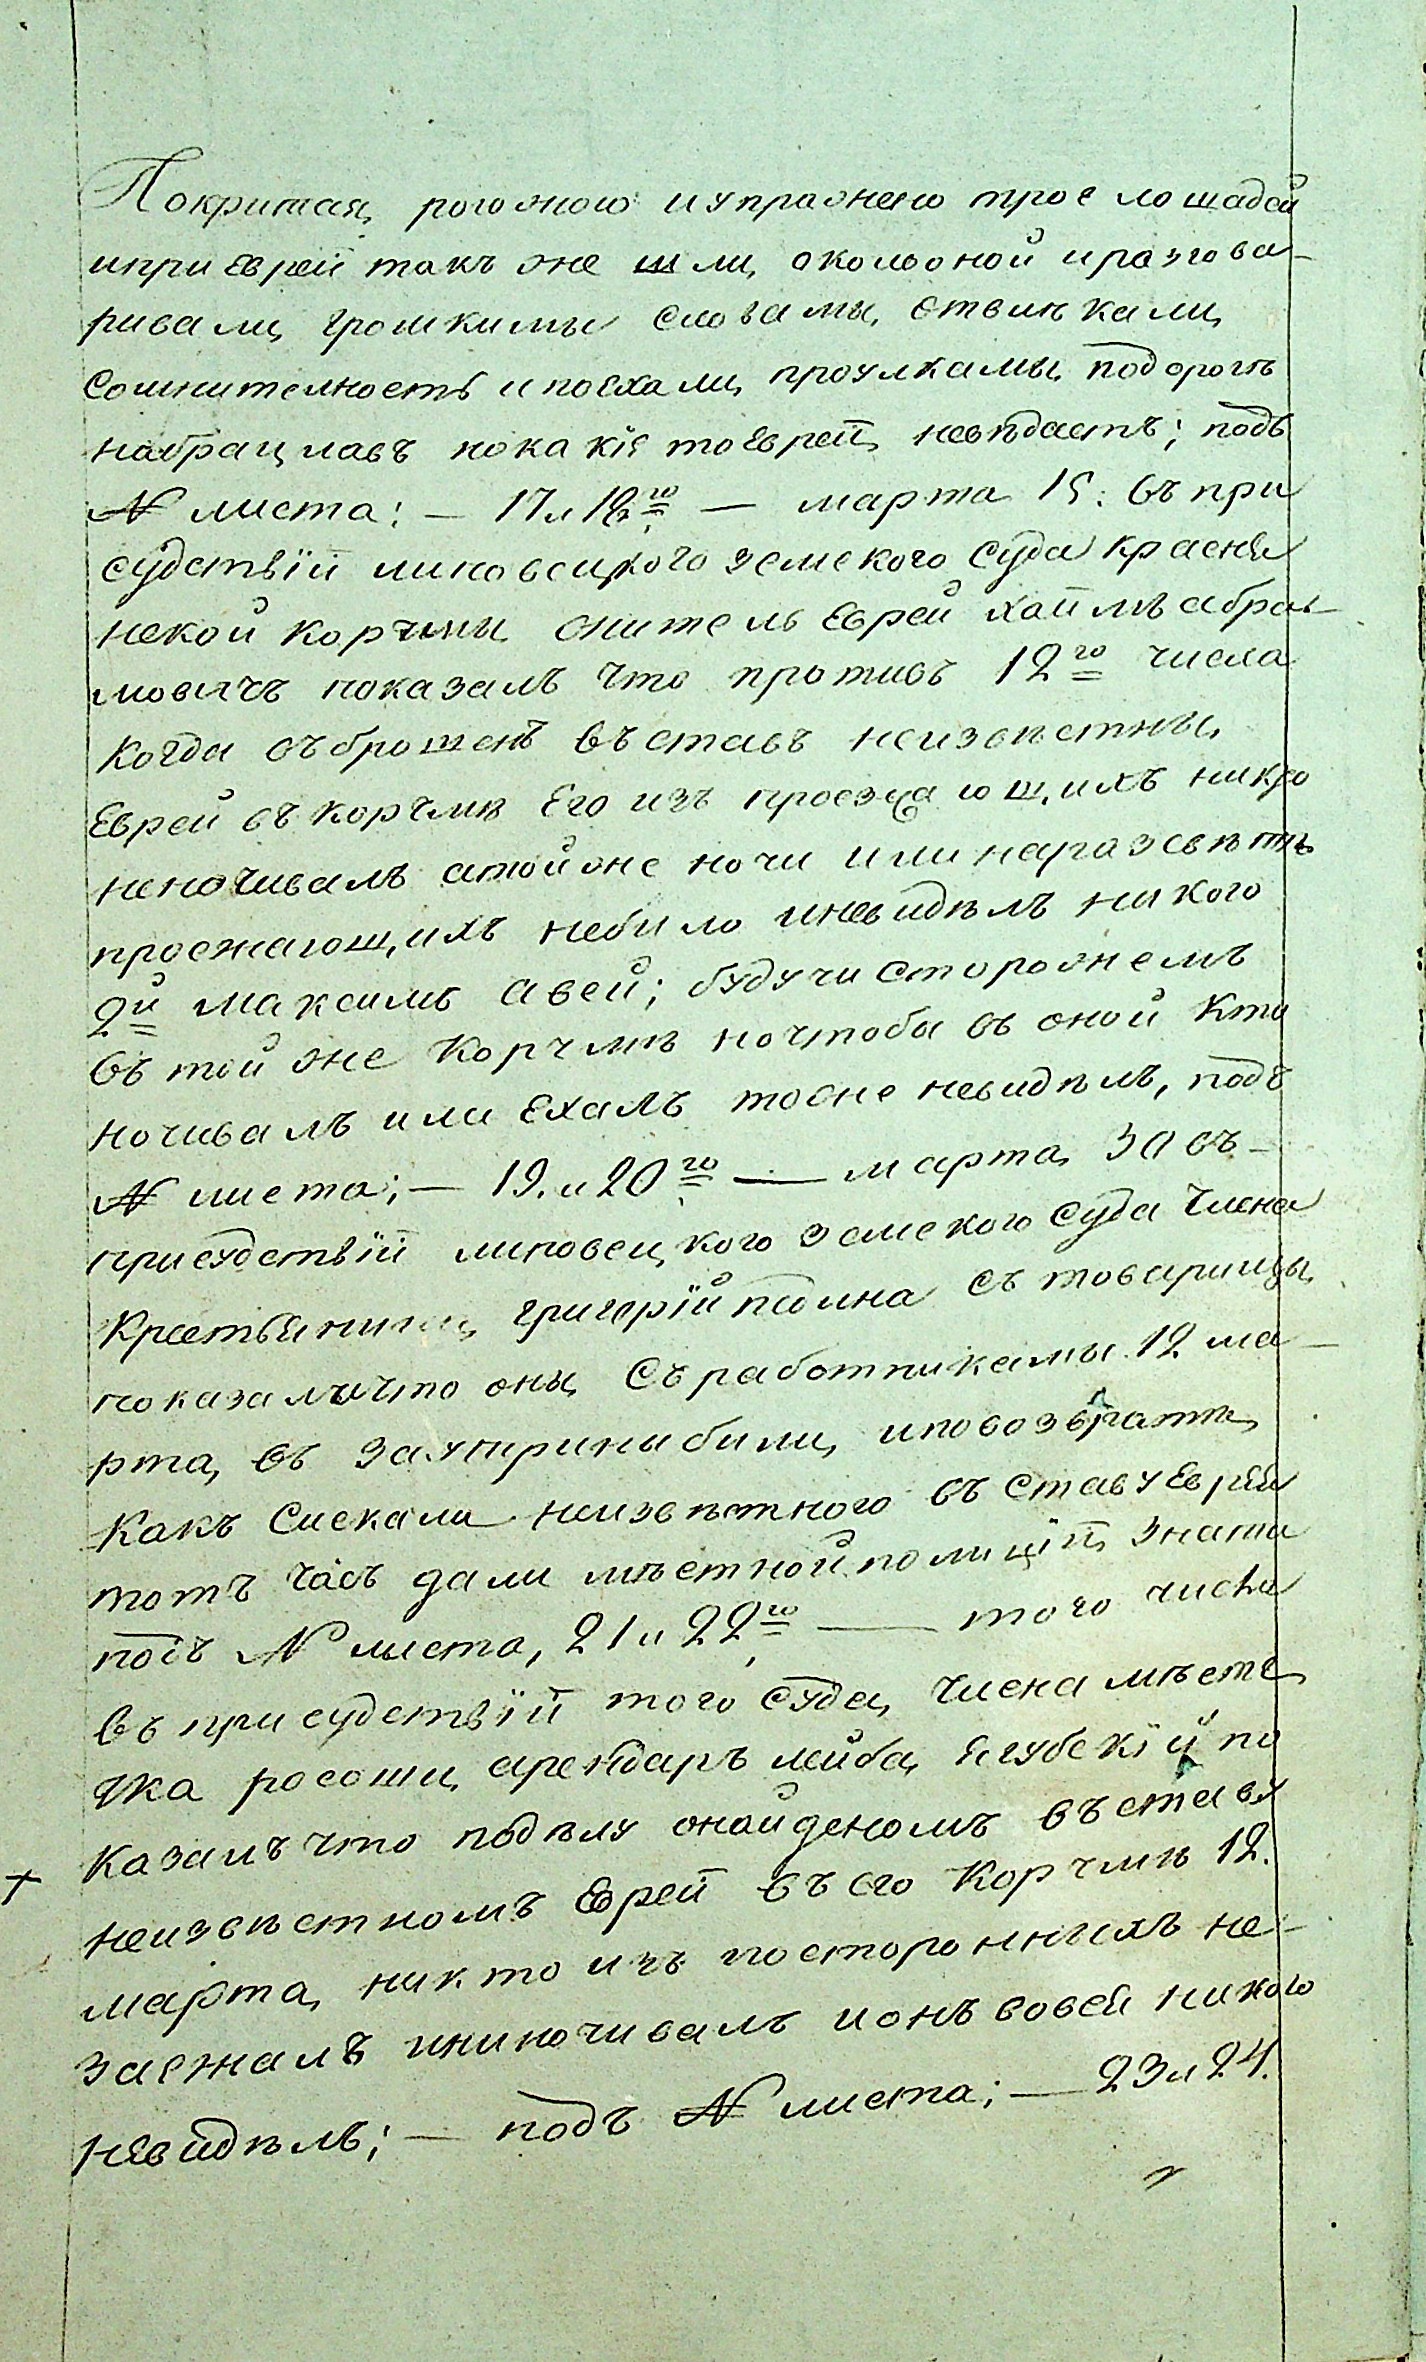 Покритая рогожою и упражнено трое лошадей
и при Еврей такъ же шли, около оной и разгова-
ривали, громкимы словамы, отвлѣкали,
Сомнителность и поехали, проулкамы, подорогѣ
на брацлавъ но какіе то Еврей, невѣдаетъ; подъ
№ листа: — 17 и 18го — марта 15. Въ при
судствїй липовецкого земского Суда красня
нской корчмы житель Еврей хаймъ абра-
мовичъ показалъ что противъ 12го числа
когда въброшенъ въ ставъ неизвѣстны,
Еврей въ корчмѣ Его изъ проезжающихъ никто
неночивалъ атой же ночи или на розсвѣтѣ
проежающихъ небило и невидѣлъ никого
2й максимъ авей; будучи Сторожемъ
Въ той же Корчмѣ но чтобы въ оной Кто
ночивалъ или Ехалъ тоже невидѣлъ, подъ
№ листа; — 19. и 20го — марта, 30 въ-
присудствїй липовецкого земского Суда Члена
Крстьянин григорїй Съ товарищы,
показали что оны, Съ работникамы 12 ма-
рта, въ заутрины били, и по возвратѣ,
Какъ Сискали неизвѣстного въ Ставу Еврея
тотъ часъ дали мѣстной полиціи, знати
подъ № листа, 21 и 22го — того числа
въ присудствїй того Суда, Члена мѣсте
чка росоши, арендаръ лейба, Ягубскїй по
казалъ что по дѣлу онайденомъ въ ставу
неизвѣстномъ Еврей въ его Корчмѣ 12.
марта, никто изъ постороннихъ не-
заежалъ и нипочивалъ и онъ вовсей никого
невидѣлъ; — подъ № листа; — 23 и 24.